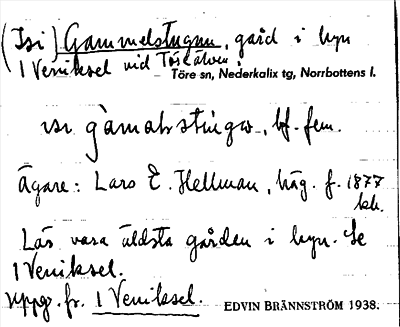 (Isi) Gammelstugun, gård i byn
1 Veniksel vid Töreälven.
Töre sn, Nederkalix tg, Norrbottens l.
bf. fem.
Ägare: Lars E. Hellman, häg. f. 1877
Lär vara äldsta gården i byn. Se
1 Veniksel.
uppg. fr. 1 Veniksel. EDVIN BRÄNNSTRÖM 1938.